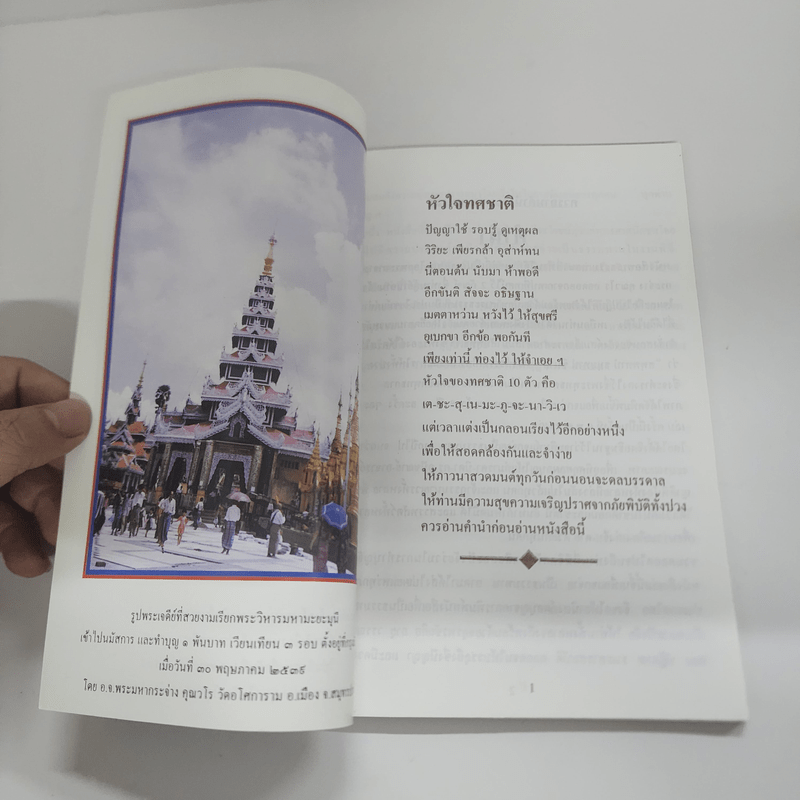 รูปพระเจดีย์ที่สวยงามเรียกพระวิหารมหามะยะมุนี
เข้าไปนมัสการ และทำบุญ ๑ พันบาท เวียนเทียน ๓ รอบ ตั้งอยู่ที่
เมื่อวันที่ ๓๐ พฤษภาคม ๒๕๓๙
โดย อ.จ.พระมหากระจ่าง คุณวโร วัดอโศการาม อ.เมือง จ.
หัวใจทศชาติ
ปัญญาใช้ รอบรู้ ดูเหตุผล
วิริยะ เพียรกล้า อุส่าห์ทน
นี่ตอนต้น นับมา ห้าพอดี
อีกขันติ สัจจะ อธิษฐาน
เมตตาหว่าน หวังไว้ ให้สุขศรี
อุเบกขา อีกข้อ พอกันที
เพียงเท่านี้ ท่องไว้ ให้จำเอย ฯ
หัวใจของทศชาติ 10 ตัว คือ
เต-ชะ-สุ-เน-มะ-ภู-จะ-นา-วิ-เว
แต่เวลาแต่งเป็นกลอนเรียงไว้อีกอย่างหนึ่ง
เพื่อให้สอดคล้องกันและจำง่าย
ให้ภาวนาสวดมนต์ทุกวันก่อนนอนจะดลบรรดาล
ให้ท่านมีความสุขความเจริญปราศจากภัยพิบัติทั้งปวง
ควรอ่านคำนำก่อนอ่านหนังสือนี้
1